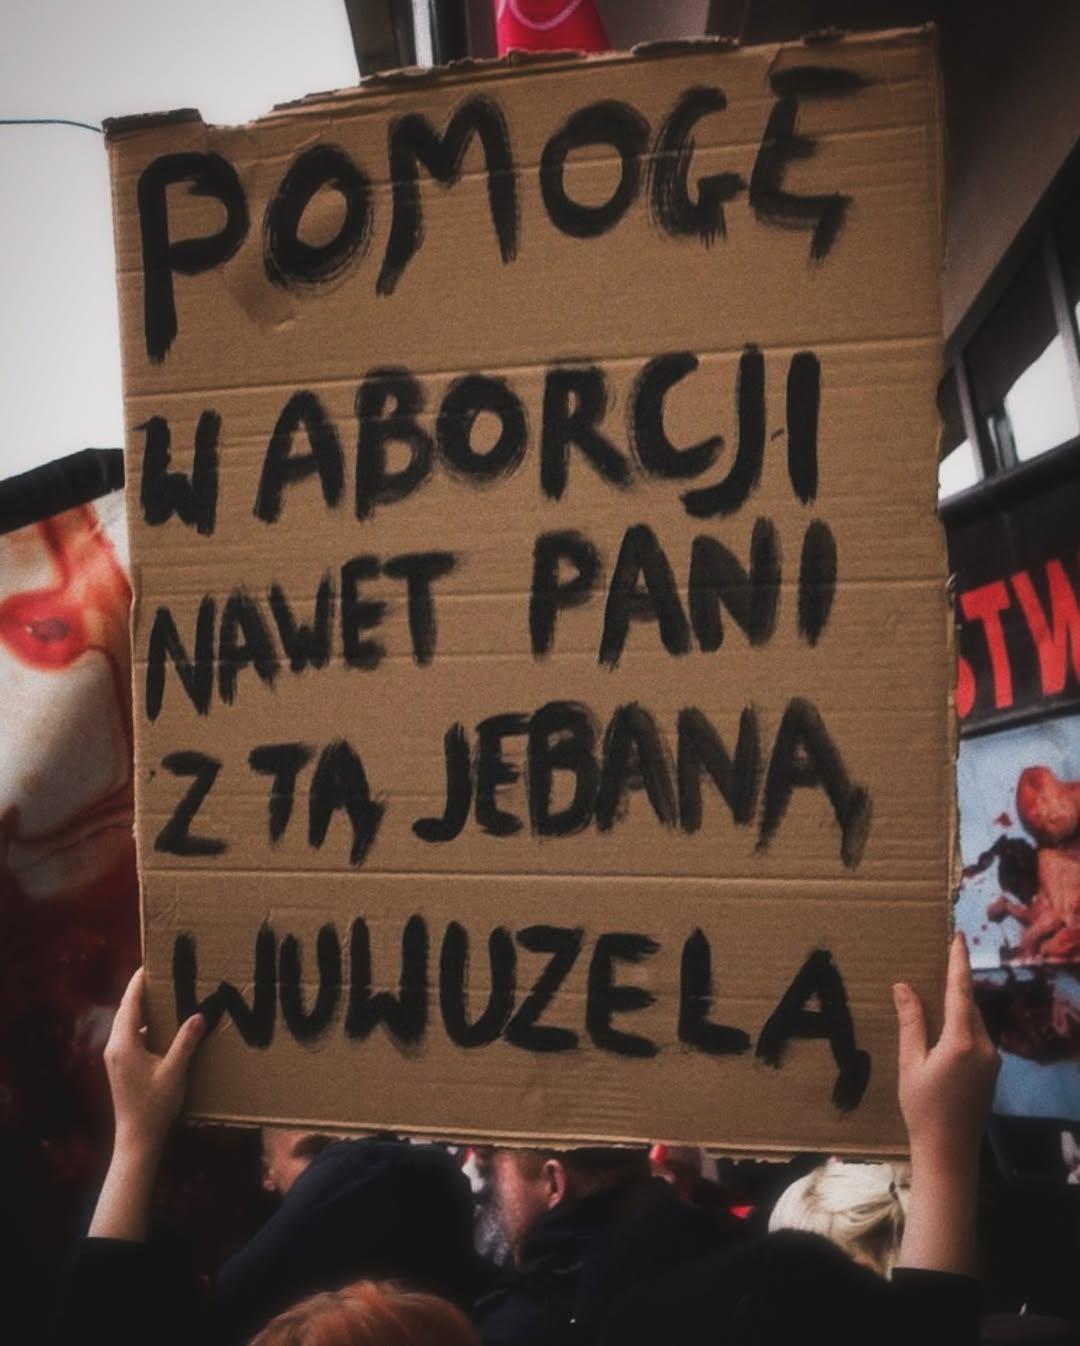 POMOGĘ
W ABORCJI
NAWET PANI
Z TĄ JEBANĄ
WUWUZELĄ
STW